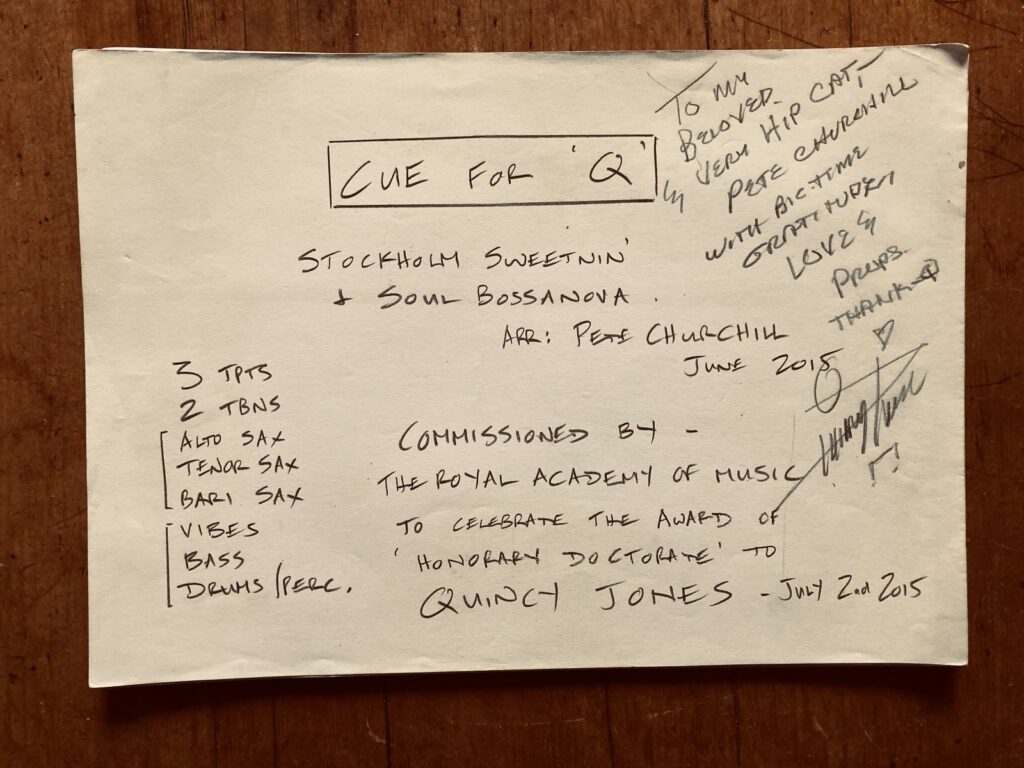 CUE FOR 'Q'
STOCKHOLM SWEETNIN'
+ SOUL BOSSANOVA.
ARR: PETE CHURCHILL
JUNE 2015
3 TPTS
2 TBNS
ALTO SAX
TENOR SAX
BARI SAX
VIBES
BASS
DRUMS/PERC.
COMMISSIONED BY –
THE ROYAL ACADEMY OF MUSIC
TO CELEBRATE THE AWARD OF
'HONORARY DOCTORATE' TO
QUINCY JONES – JULY 2nd 2015
TO MY
BELOVED
& VERY HIP CAT,
PETE CHURCHILL
WITH BIG TIME
GRATITUDE,
LOVE &
PROPS.
THANK